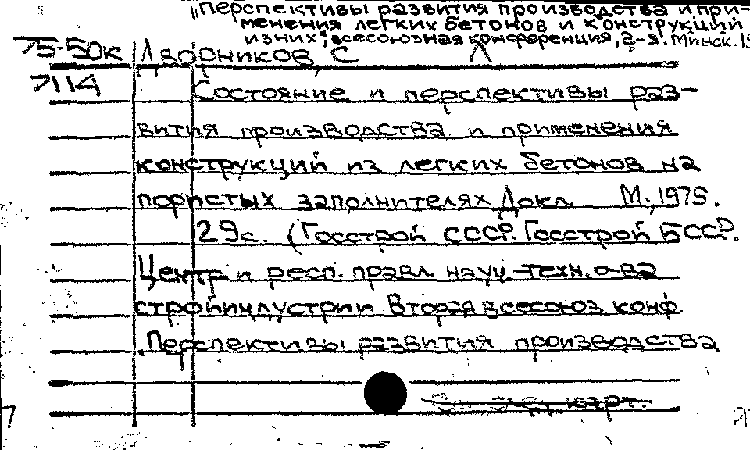 „Перспективы развития производства и при-
менения легких бетонов и конструкций
из них", всесоюзная конференция, 2-я. Минск. 19
75-50к Дворников, С Л
7114 Состояние и перспективы раз-
вития производства и применения
конструкций из легких бетонов на
пористых заполнителях Докл М., 1975.
29с. (Госстрой СССР. Госстрой БССР.
Центр и респ. правл. науч-техн. о-ва
стройиндустрии Вторая всесоюз конф
.Перспективы развития производства